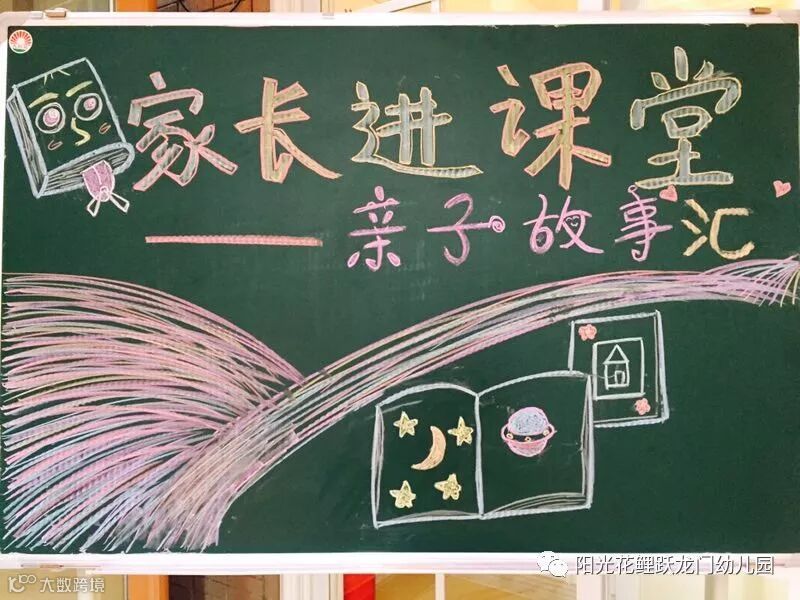 家长进课堂
——亲子故事汇
阳光花鲤跃龙门幼儿园
大数跨境